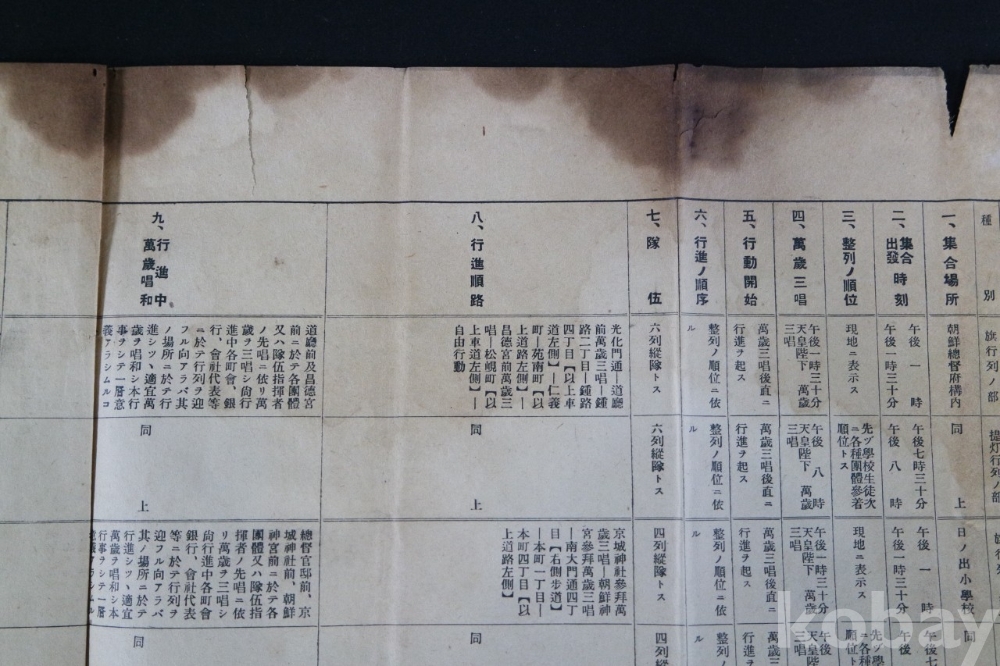 種別
一、集合場所
二、集合
出發
時刻
三、整列ノ順位
四、萬歲三唱
五、行動開始
六、行進ノ順序
七、隊伍
八、行進順路
九、行進中
萬歲唱和
旗行列ノ部
朝鮮總督府構內
午後一時
午後一時三十分
現地ニ表示ス
午後一時三十分
天皇陛下萬歲
三唱
萬歲三唱後直ニ
行進ヲ起ス
整列ノ順位ニ依
ル
六列縱隊トス
光化門通―道廳
前萬歲三唱―鍾
路二丁目―鍾路
四丁目【以上車
道左側】―仁義
町―苑南町【以
上道路左側】―
昌德宮前萬歲三
唱―松峴町【以
上車道左側】―
自由行動
道廳前及昌德宮
前ニ於テ各團體
又ハ隊伍指揮者
ノ先唱ニ依リ萬
歲ヲ三唱シ尙行
進中各町會、銀
行、會社代表等
ニ於テ行列ヲ迎
フル向アラバ其
ノ場所ニ於テ行
進シツヽ適宜萬
歲ヲ唱和シ本行
事ヲシテ一層意
義アラシムルコ
提灯行列ノ部
同上
午後七時三十分
午後八時
先ヅ學校生徒次
ニ各種團體參着
順位トス
午後八時
天皇陛下萬歲
三唱
萬歲三唱後直ニ
行進ヲ起ス
整列ノ順位ニ依
ル
六列縱隊トス
同上
同上
日ノ出小學校
午後一時
午後一時三十分
現地ニ表示ス
午後一時三十分
天皇陛下萬歲
三唱
萬歲三唱後直ニ
行進ヲ起ス
整列ノ順位ニ依
ル
四列縱隊トス
京城神社參拜萬
歲三唱―朝鮮神
宮參拜萬歲三唱
―南大門通四丁
目【右側步道】
―本町一丁目―
本町四丁目【以
上道路左側】
總督官邸前、京
城神社前、朝鮮
神宮前ニ於テ各
團體又ハ隊伍指
揮者ノ先唱ニ依
リ萬歲ヲ三唱シ
尙行進中各町會
銀行、會社代表
等ニ於テ行列ヲ
迎フル向アラバ
其ノ場所ニ於テ
行進シツヽ適宜
萬歲ヲ唱和シ本
行事ヲシテ一層
同
午後七
午後
先ヅ學
ニ各種
順位ト
午後
天皇陛
三唱
萬歲三
行進ヲ
整列ノ
ル
四列縱
同
同
kobay